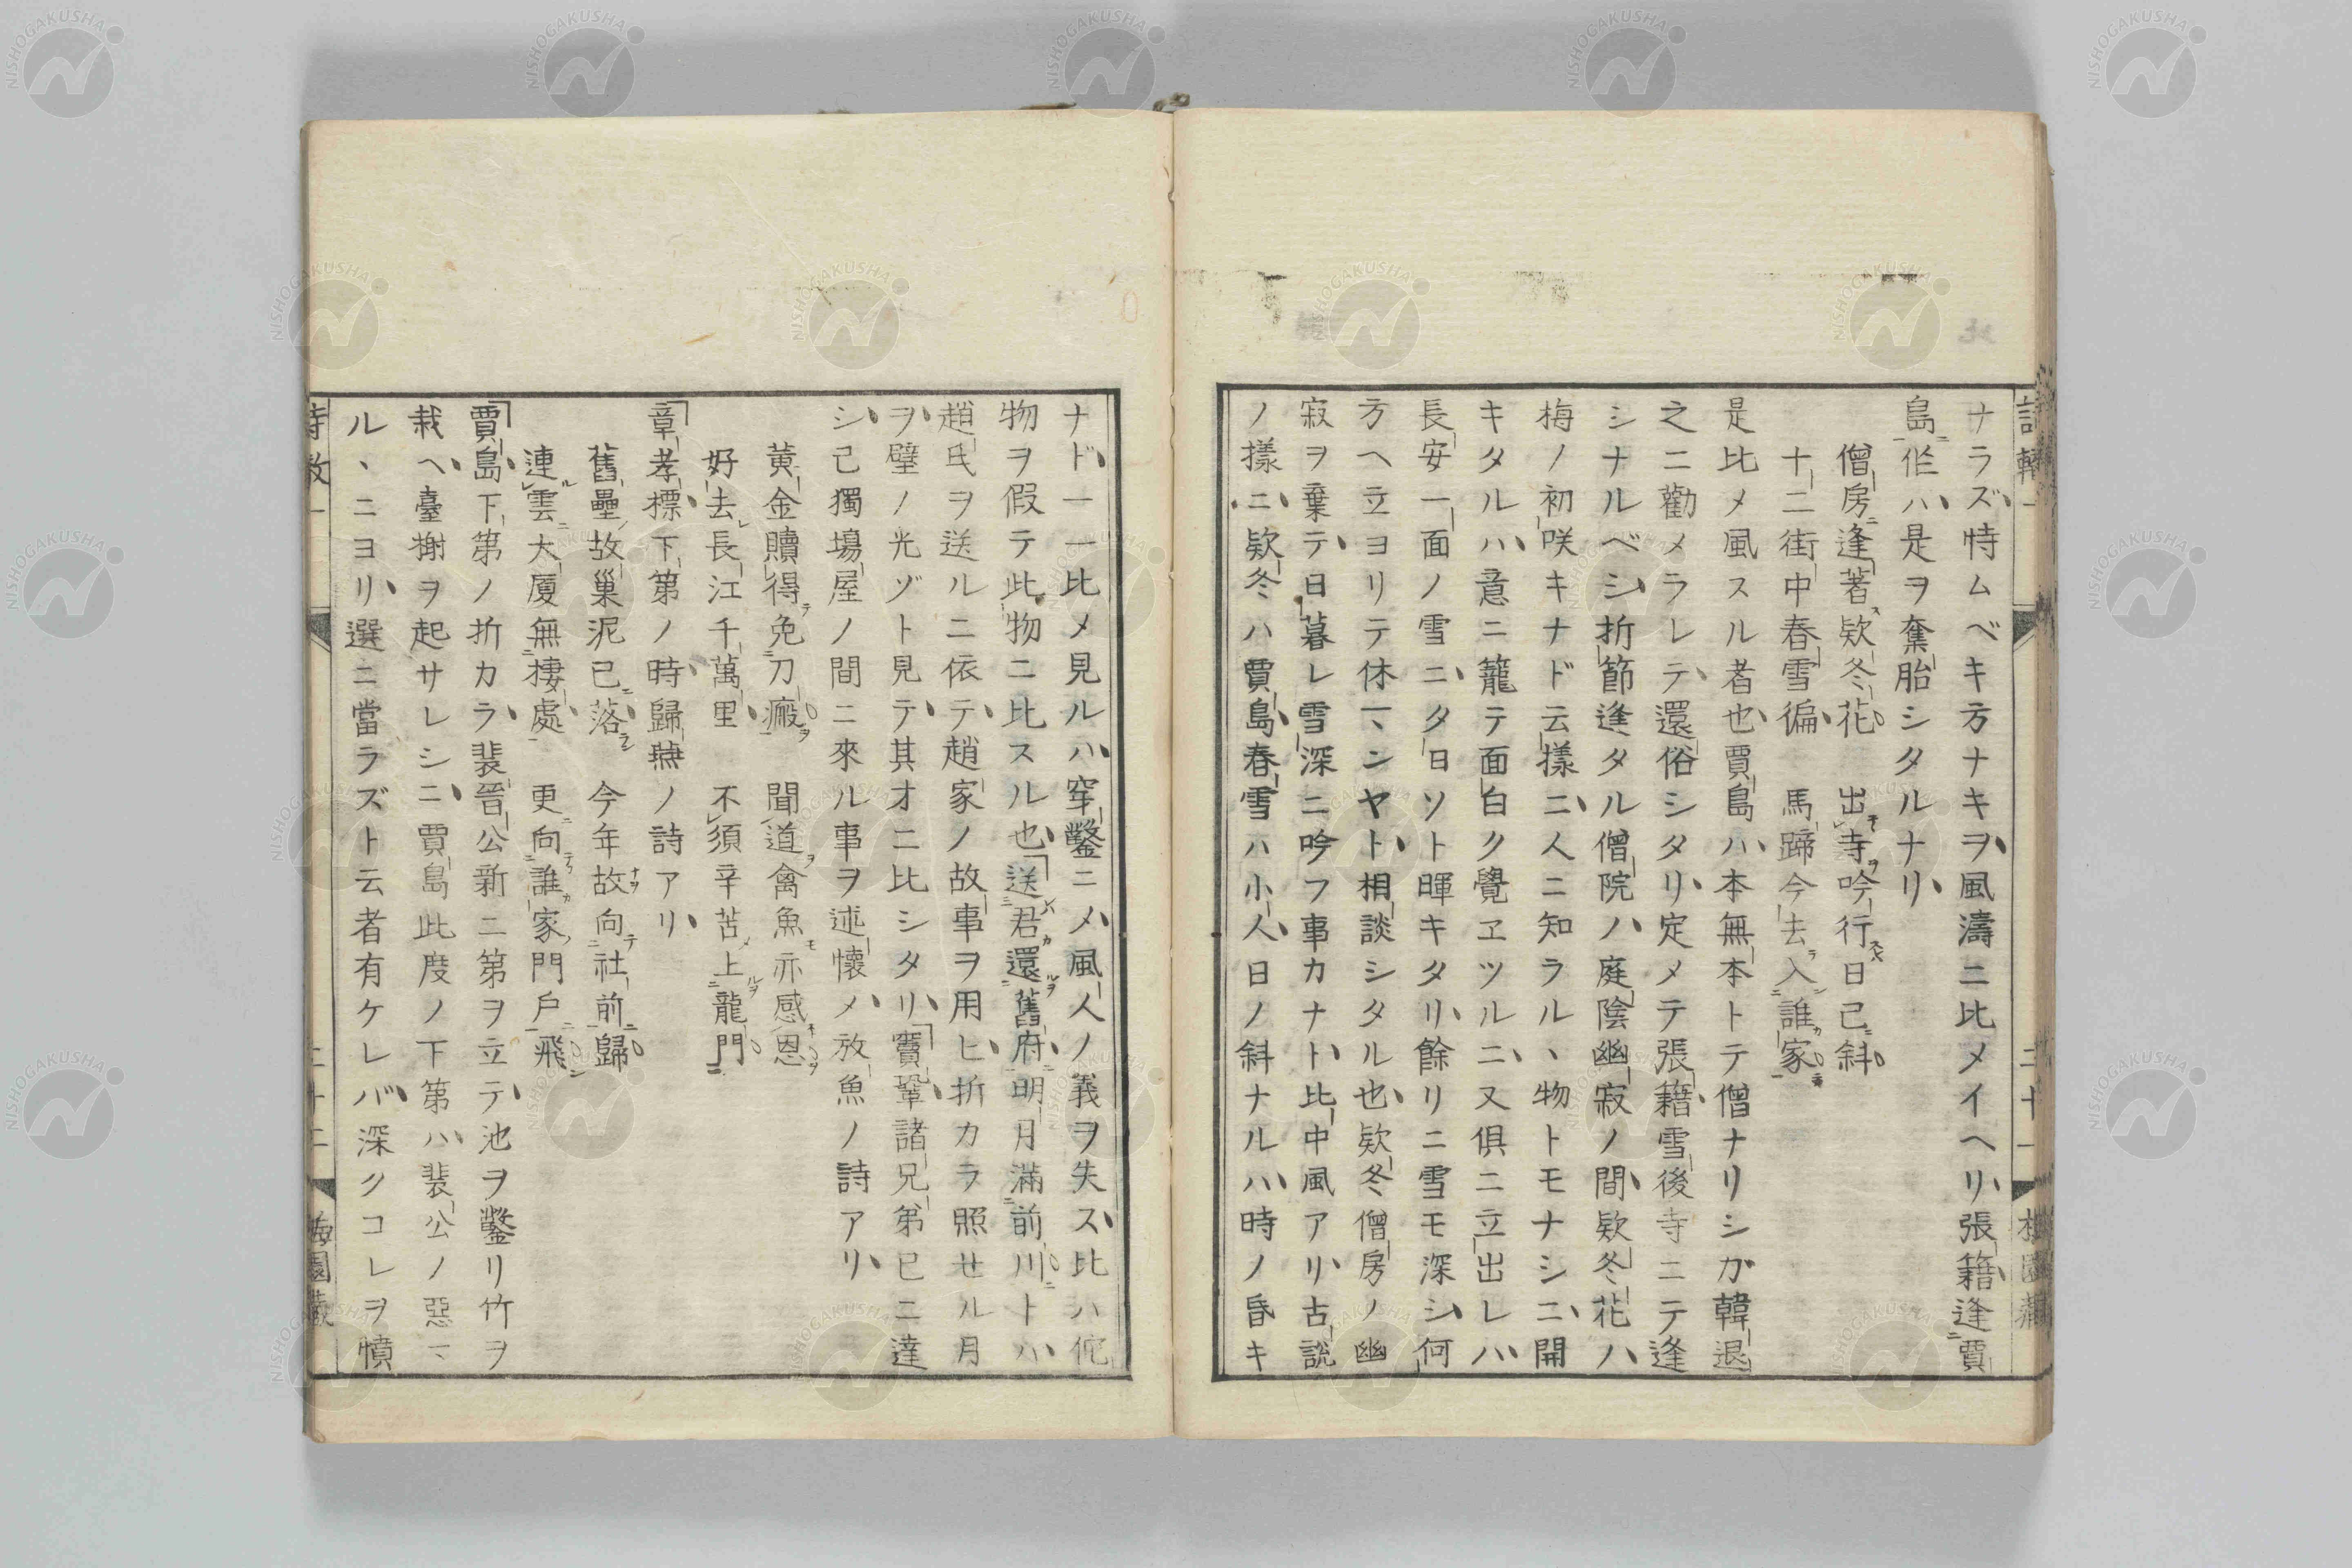 ナラズ、恃ムベキ方ナキヲ、風濤ニ比メイヘリ、張籍逢賈
島作ハ、是ヲ奪胎シタルナリ、
僧房逢著欵冬花　出寺吟行日已斜
十二街中春雪徧　馬蹄今去入誰家
是比メ風スル者也、賈島ハ、本無本トテ僧ナリシカ、韓退
之ニ勸メラレテ、還俗シタリ、定メテ張籍、雪後寺ニテ逢
シナルベシ、折節逢タル僧院ノ、庭陰幽寂ノ間、欵冬花ハ、
梅ノ初咲キナド云樣ニ、人ニ知ラル、物トモナシニ、開
キタルハ、意ニ籠テ面白ク覺ヱツルニ、又倶ニ立出レハ、
長安一面ノ雪ニ、夕日ソト暉キタリ、餘リニ雪モ深シ、何
方ヘ立ヨリテ休マンヤト、相談シタル也、欵冬僧房ノ幽
寂ヲ棄テ、日暮レ雪深ニ吟フ事カナト、比中風アリ、古説
ノ樣ニ、欵冬ハ賈島、春雪ハ小人、日ノ斜ナルハ、時ノ昏キ
二十一
ナド、一一比メ見ルハ、穿鑿ニメ、風人ノ義ヲ失ス、比ハ佗
物ヲ假テ此物ニ比スル也、送君還舊府、明月滿前川トハ、
趙氏ヲ送ルニ依テ、趙家ノ故事ヲ用ヒ、折カラ照セル月
ヲ、璧ノ光ゾト見テ、其才ニ比シタリ、竇鞏、諸兄弟已ニ達
シ、己獨塲屋ノ間ニ來ル事ヲ述懷メ、放魚ノ詩アリ、
黄金贖得免刀瘢　聞道禽魚亦感恩
好去長江千萬里　不須辛苦上龍門
章孝標、下第ノ時、歸燕ノ詩アリ、
舊壘故巢泥已落　今年故向社前歸
連雲大厦無棲處　更向誰家門戸飛
賈島、下第ノ折カラ、裴晉公新ニ第ヲ立テ、池ヲ鑿リ竹ヲ
栽ヘ、臺榭ヲ起サレシニ、賈島此度ノ下第ハ、裴公ノ惡マ
ル、ニヨリ、選ニ當ラズト云者有ケレバ、深クコレヲ憤
二十二
梅園藏